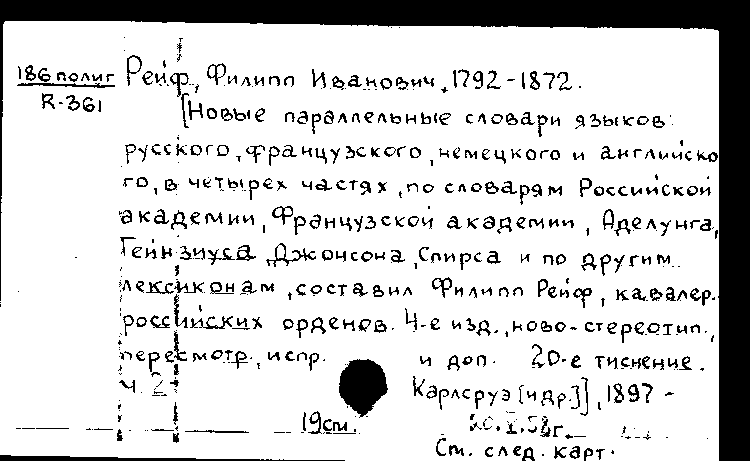 186 полиг Рейф, Филипп Иванович, 1792-1872.
R-361
[Новые параллельные словари языков:
русского, французского, немецкого и английско
го, в четырех частях, по словарям Российской
академии, Французской академии, Аделунга,
Гейнзиуса, Джонсона, Спирса и по другим
лексиконам, составил Филипп Рейф, кавалер
российских орденов. 4-е изд., ново-стереотип.,
пересмотр., испр. и доп. 20-е тиснение.
Ч. 2- Карлсруэ [и др.]], 1897 -
19см.
См. след. карт.